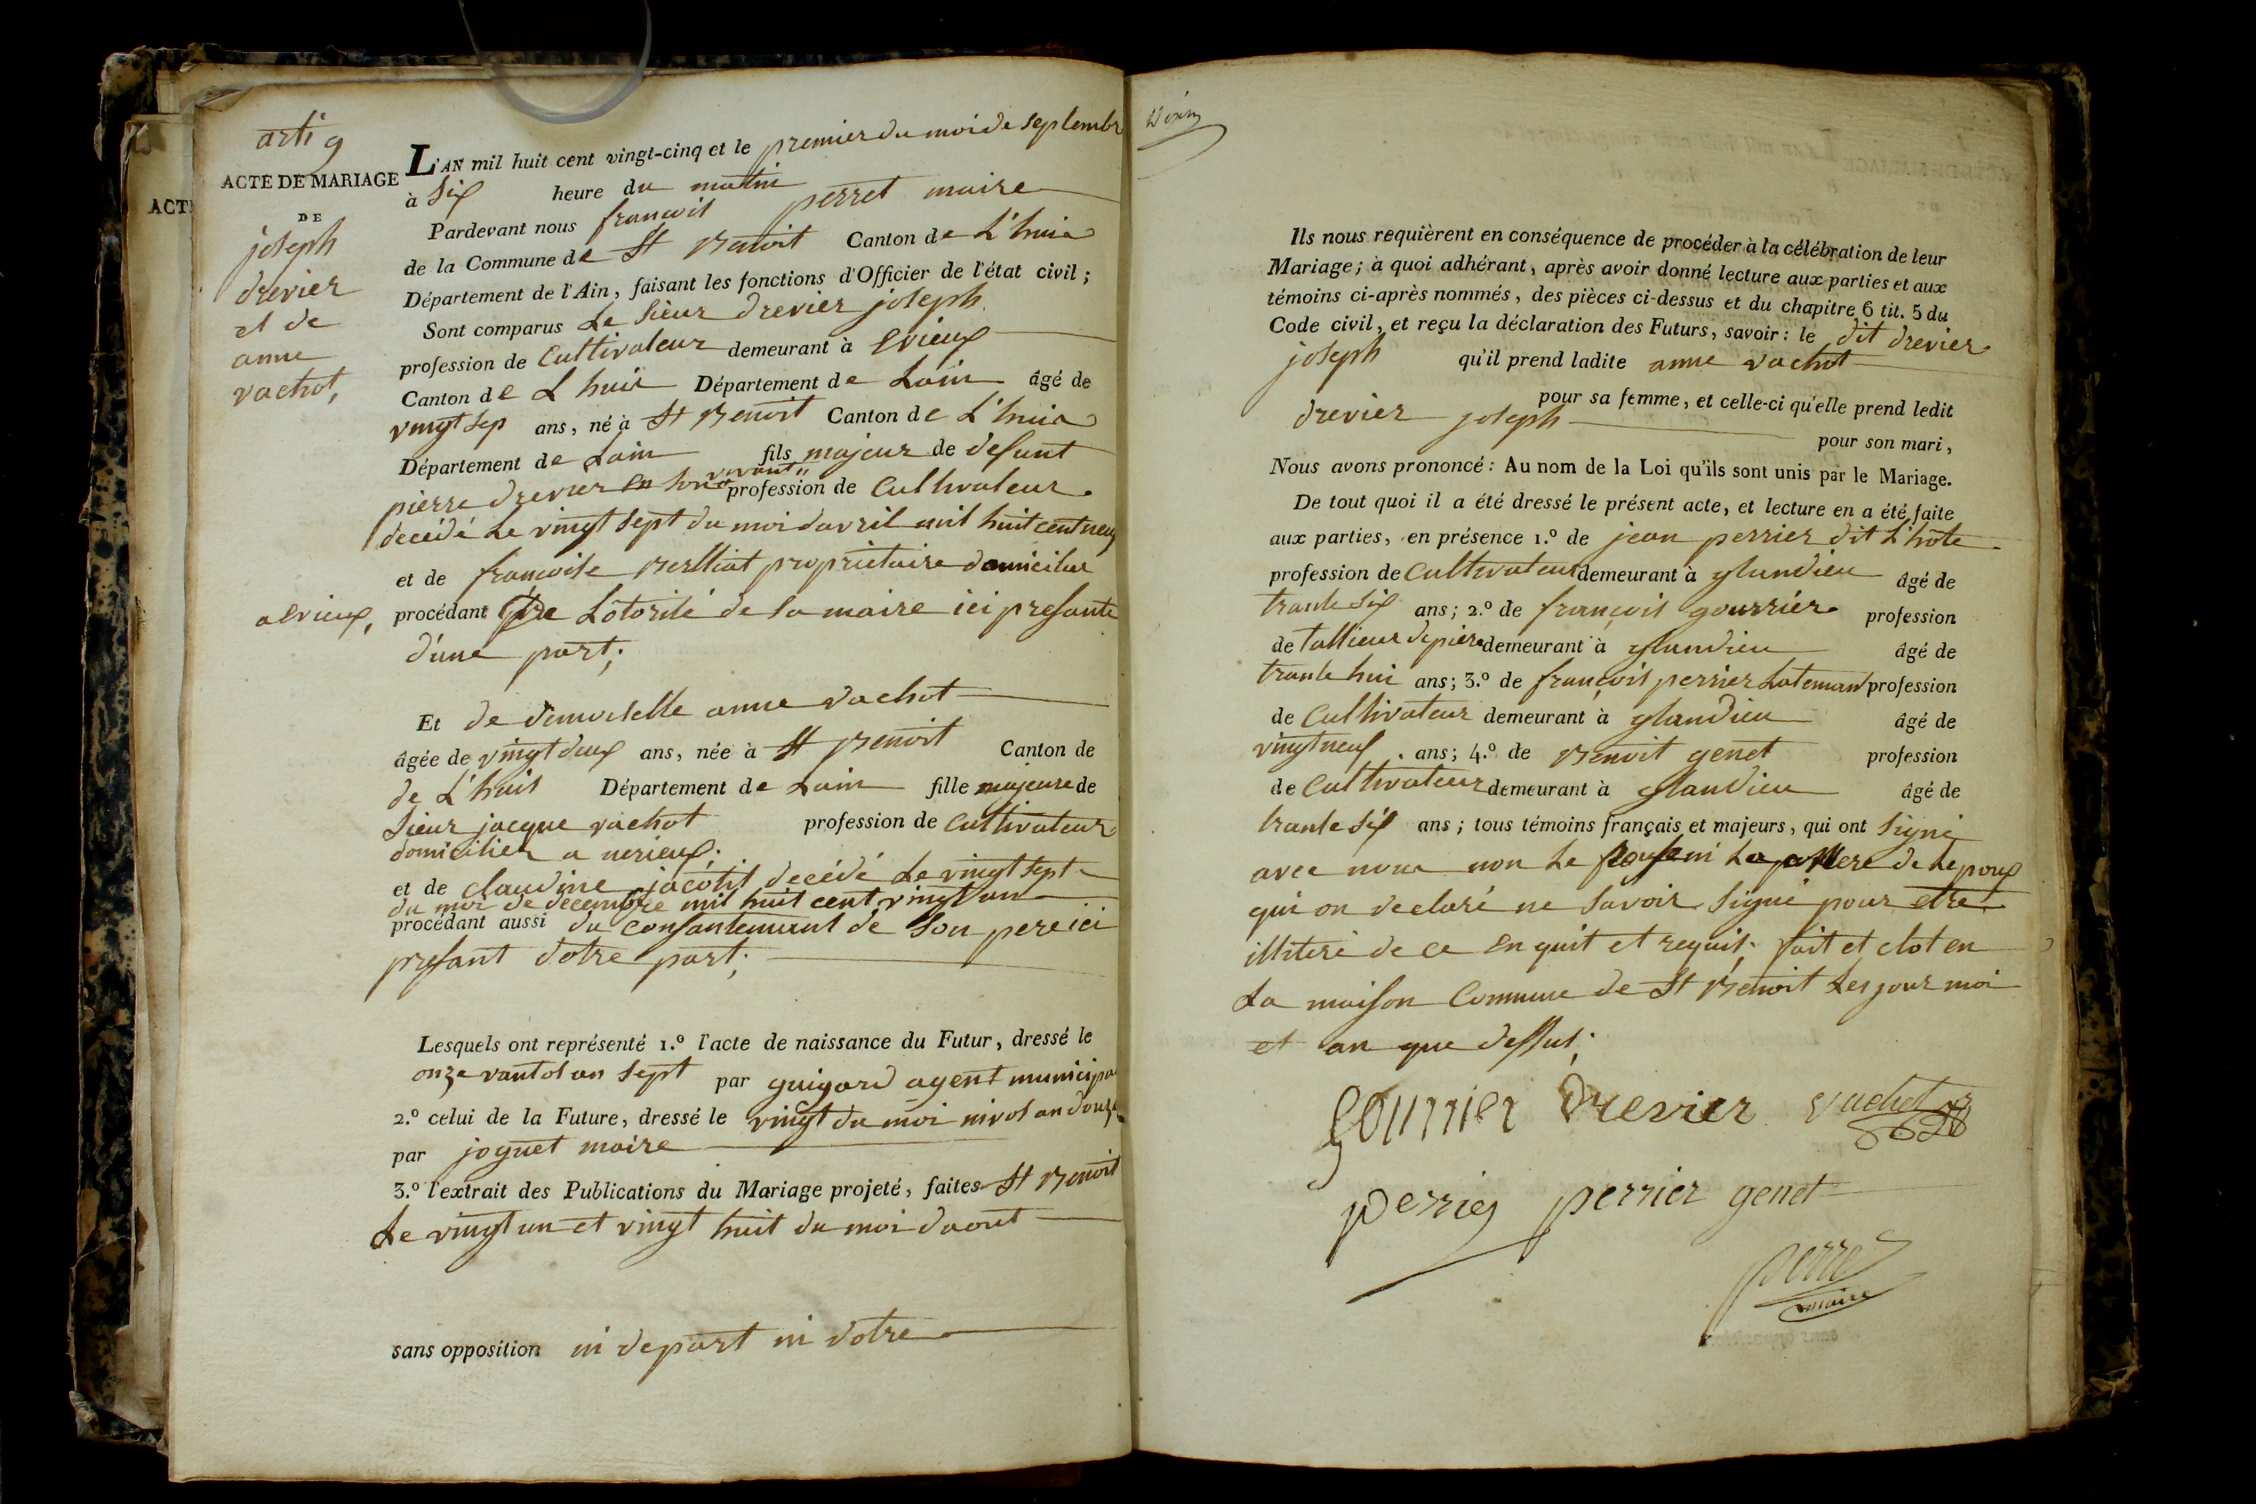 arti 9
ACTE DE MARIAGE
DE
joseph
drevier
et de
anne
vachot,
ACT
L'AN mil huit cent vingt-cinq et le premier du moi de septembr
à six heure du matin
Pardevant nous francois perret maire
de la Commune de St Benoit Canton de L'huis
Département de l'Ain, faisant les fonctions d'Officier de l'état civil;
Sont comparus Le sieur drevier joseph
profession de Cultivateur demeurant à Evieux
Canton de L huis Département de Lain âgé de
vingt sep ans, né à St Benoit Canton de L'huis
Département de Lain fils majeur de defunt
pierre drevier en son vivant profession de Cultivateur
decédé Le vingt sept du moi davril mil huit cent neuf
et de francoise proprietaire domicilue
a Evieux,
procédant de Lotorité de sa maire ici presante
d'une part;
Et de demoiselle anne vachot
âgée de vingt deux ans, née à St Benoit Canton de
de L'huis Département de Lain fille majeure de
Sieur jacque vachot profession de Cultivateur
domicilier a
et de claudine jacotit decédé Le vingt sept
du moi de decembre mil huit cent vingt un
procédant aussi du consantement de son pere ici
presant dotre part;
Lesquels ont représenté 1.º l'acte de naissance du Futur, dressé le
onze vantos an sept par guigard agent municipa
2.º celui de la Future, dressé le vingt du moi nivos an douze
par joguet maire
3.º l'extrait des Publications du Mariage projeté, faites St Benoit
Le vingt un et vingt huit du moi daout
sans opposition ni depart ni dotre
Ils nous requièrent en conséquence de procéder à la célébration de leur
Mariage; à quoi adhérant, après avoir donné lecture aux parties et aux
témoins ci-après nommés, des pièces ci-dessus et du chapitre 6 tit. 5 du
Code civil, et reçu la déclaration des Futurs, savoir: le dit drevier
joseph qu'il prend ladite anne vachot
pour sa femme, et celle-ci qu'elle prend ledit
drevier joseph
pour son mari,
Nous avons prononcé: Au nom de la Loi qu'ils sont unis par le Mariage.
De tout quoi il a été dressé le présent acte, et lecture en a été faite
aux parties, en présence 1.º de jean perrier dit L'hote
profession de Cultivateur demeurant à glandieu âgé de
trante six ans; 2.º de françois gourrier profession
de tallieur de piere demeurant à glandieu âgé de
trante hui ans; 3.º de françois perrier profession
de Cultivateur demeurant à glandieu âgé de
vingt neuf ans; 4.º de Benoit genet profession
de Cultivateur demeurant à glandieu âgé de
trante six ans; tous témoins français et majeurs, qui ont signé
avec nous non Le ni La mere de Lepoux
qui on declaré ne savoir signé pour etre
illiteré de ce en quit et requit; fait et clot en
La maison Commune de St Benoit Les jour moi
et an que dessus;
gourrier Drevier vachot
perrier perrier genet
perret
maire